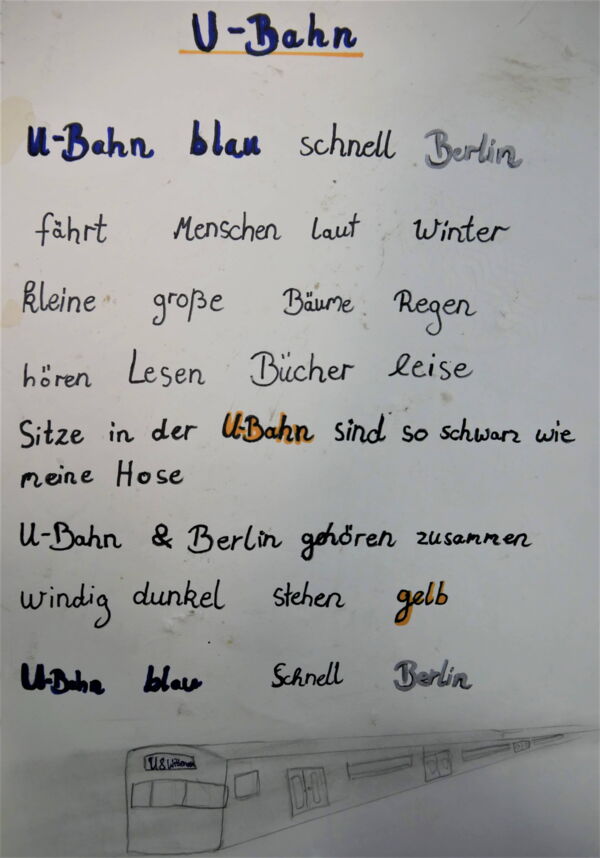 U-Bahn
U-Bahn blau schnell Berlin
fährt Menschen laut Winter
kleine große Bäume Regen
hören Lesen Bücher leise
Sitze in der U-Bahn sind so schwarz wie
meine Hose
U-Bahn & Berlin gehören zusammen
windig dunkel stehen gelb
U-Bahn blau Schnell Berlin